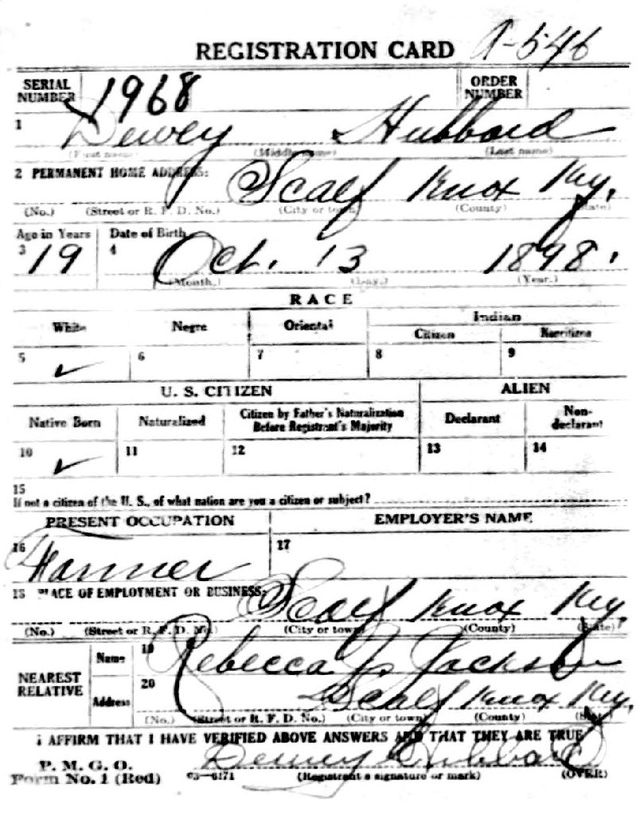 REGISTRATION CARD A-546
SERIAL NUMBER 1968 ORDER NUMBER
1 Dewey Hubbard
(First name) (Middle name) (Last name)
2 PERMANENT HOME ADDRESS: Scalf Knox Ky.
(No.) (Street or R. F. D. No.) (City or town) (County) (State)
Age in Years Date of Birth
3 19 4 Oct. 13 1898.
(Month.) (Day.) (Year.)
RACE
White Negro Oriental Indian
Citizen Noncitizen
5 ✓ 6 7 8 9
U. S. CITIZEN ALIEN
Native Born Naturalized Citizen by Father's Naturalization Before Registrant's Majority Declarant Non-declarant
10 ✓ 11 12 13 14
15
If not a citizen of the U. S., of what nation are you a citizen or subject?
PRESENT OCCUPATION EMPLOYER'S NAME
16 Farmer 17
18 PLACE OF EMPLOYMENT OR BUSINESS: Scalf Knox Ky.
(No.) (Street or R. F. D. No.) (City or town) (County) (State)
NEAREST RELATIVE Name 19 Rebecca J. Jackson
Address 20 Scalf Knox Ky.
(No.) (Street or R. F. D. No.) (City or town) (County) (State)
I AFFIRM THAT I HAVE VERIFIED ABOVE ANSWERS AND THAT THEY ARE TRUE
P. M. G. O.
Form No. 1 (Red) 03—6171 Dewey Hubbard
(Registrant's signature or mark) (OVER)